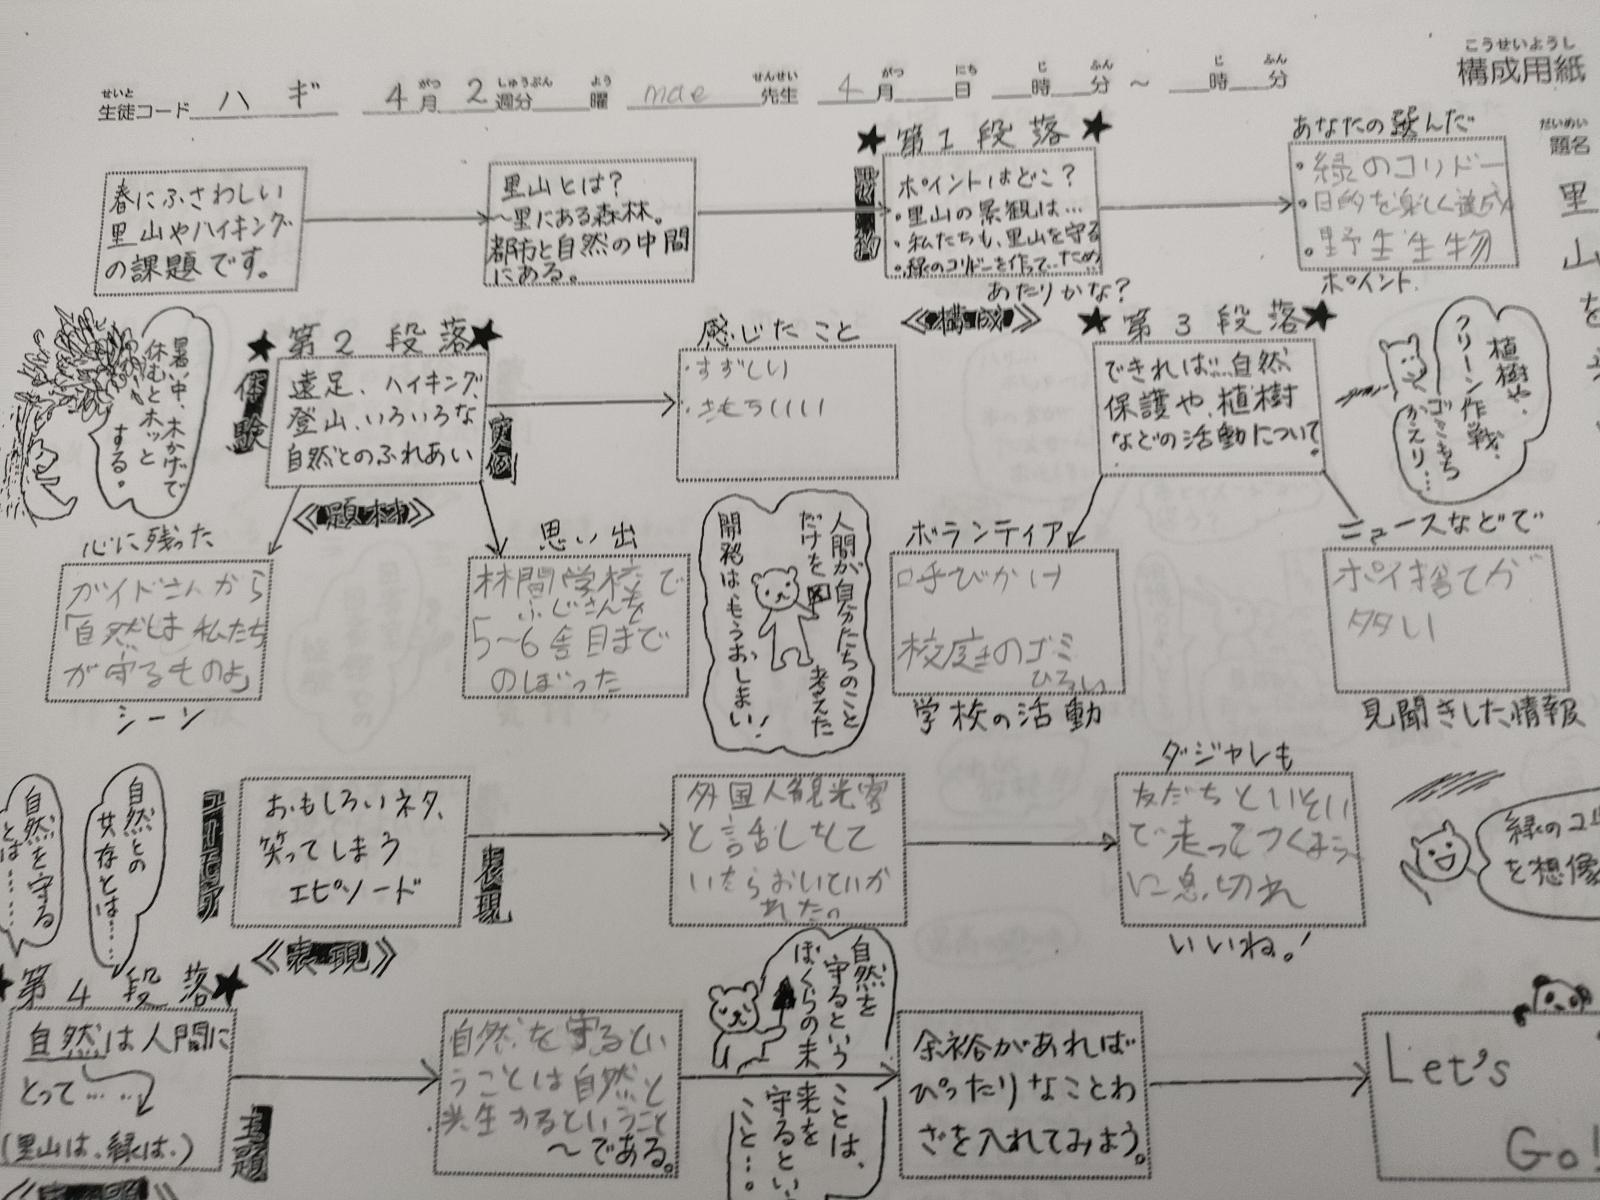 こうせいようし
構成用紙
せいと がつ しゅうぶん よう せんせい がつ にち じ ふん じ ふん
生徒コード ハギ 4月 2週分 曜 mae 先生 4月 日 時 分 ～ 時 分
だいめい
題名
里
山
を
春にふさわしい
里山やハイキング
の課題です。
里山とは？
～里にある森林。
都市と自然の中間
にある。
★第1段落★
ポイントはどこ？
・里山の景観は…
・私たちも、里山を守る
・緑のコリドーを作って…ため
あたりかな？
《構成》
あなたの選んだ
・緑のコリドー
・目的を楽しく達成
・野生生物
ポイント
暑い中、木かげで
休むとホッと
する。
★第2段落★
体験
遠足、ハイキング、
登山、いろいろな
自然とのふれあい
実例
《題材》
感じたこと
・すずしい
・きもちいい
★第3段落★
できれば…自然
保護や、植樹
などの活動について。
植樹や、
クリーン作戦、
ゴミもち
かえり…
心に残った
ガイドさんから
「自然は私たち
が守るものよ」
シーン
思い出
林間学校で
ふじさんを
5～6合目まで
のぼった
人間が自分たちのこと
だけを
考えた
開発は、もうおしまい！
ボランティア
呼びかけ
校庭のゴミ
ひろい
学校の活動
ニュースなどで
ポイ捨てが
多い
見聞きした情報
自然を守る
とは……
自然との
共存とは……
ユーモア
おもしろいネタ、
笑ってしまう
エピソード
表現
《表現》
外国人観光客
と話しをして
いたらおいていか
れた。
ダジャレも
友だちといそい
で走ってつくまう
に息切れ
いいね！
緑のコリ
を想像
★第4段落★
自然は人間に
とって……
(里山は、緑は、)
主題
自然を守るとい
うことは自然と
共生するということ
～である。
自然を
守るという
ことは、
ぼくらの未
来を
守るという
こと…。
余裕があれば
ぴったりなことわ
ざを入れてみよう。
Let's
Go!